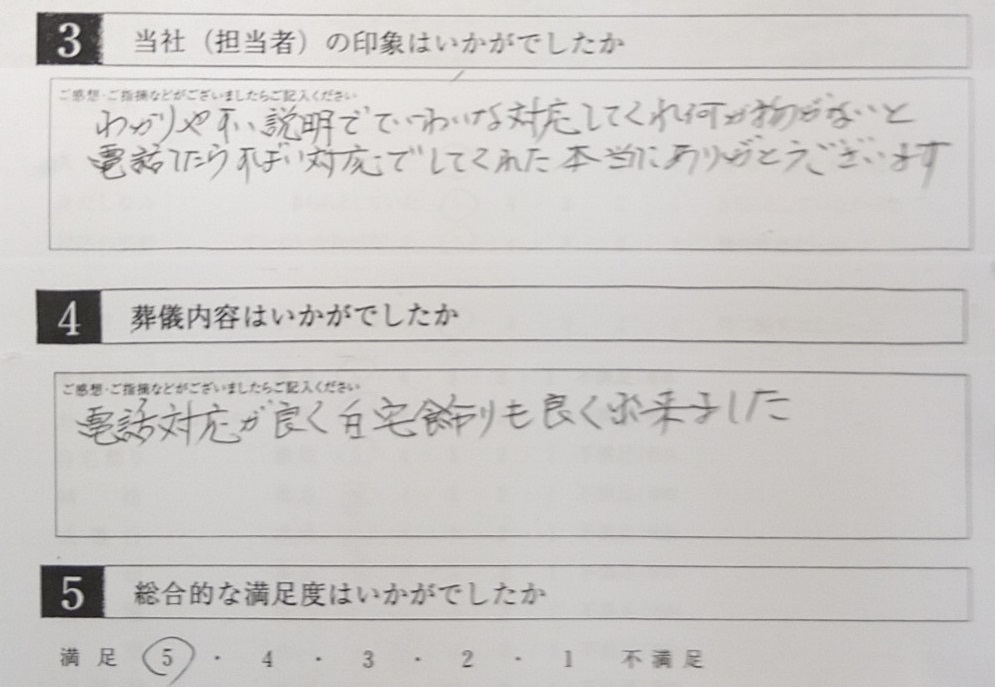 3 当社（担当者）の印象はいかがでしたか
ご感想・ご指摘などがございましたらご記入ください
わかりやすい説明でていねいな対応してくれ何か物がないと
電話したらすばい対応でしてくれた本当にありがとうございます
4 葬儀内容はいかがでしたか
ご感想・ご指摘などがございましたらご記入ください
電話対応が良く自宅飾りも良く出来ました
5 総合的な満足度はいかがでしたか
満足 5 ・ 4 ・ 3 ・ 2 ・ 1 不満足